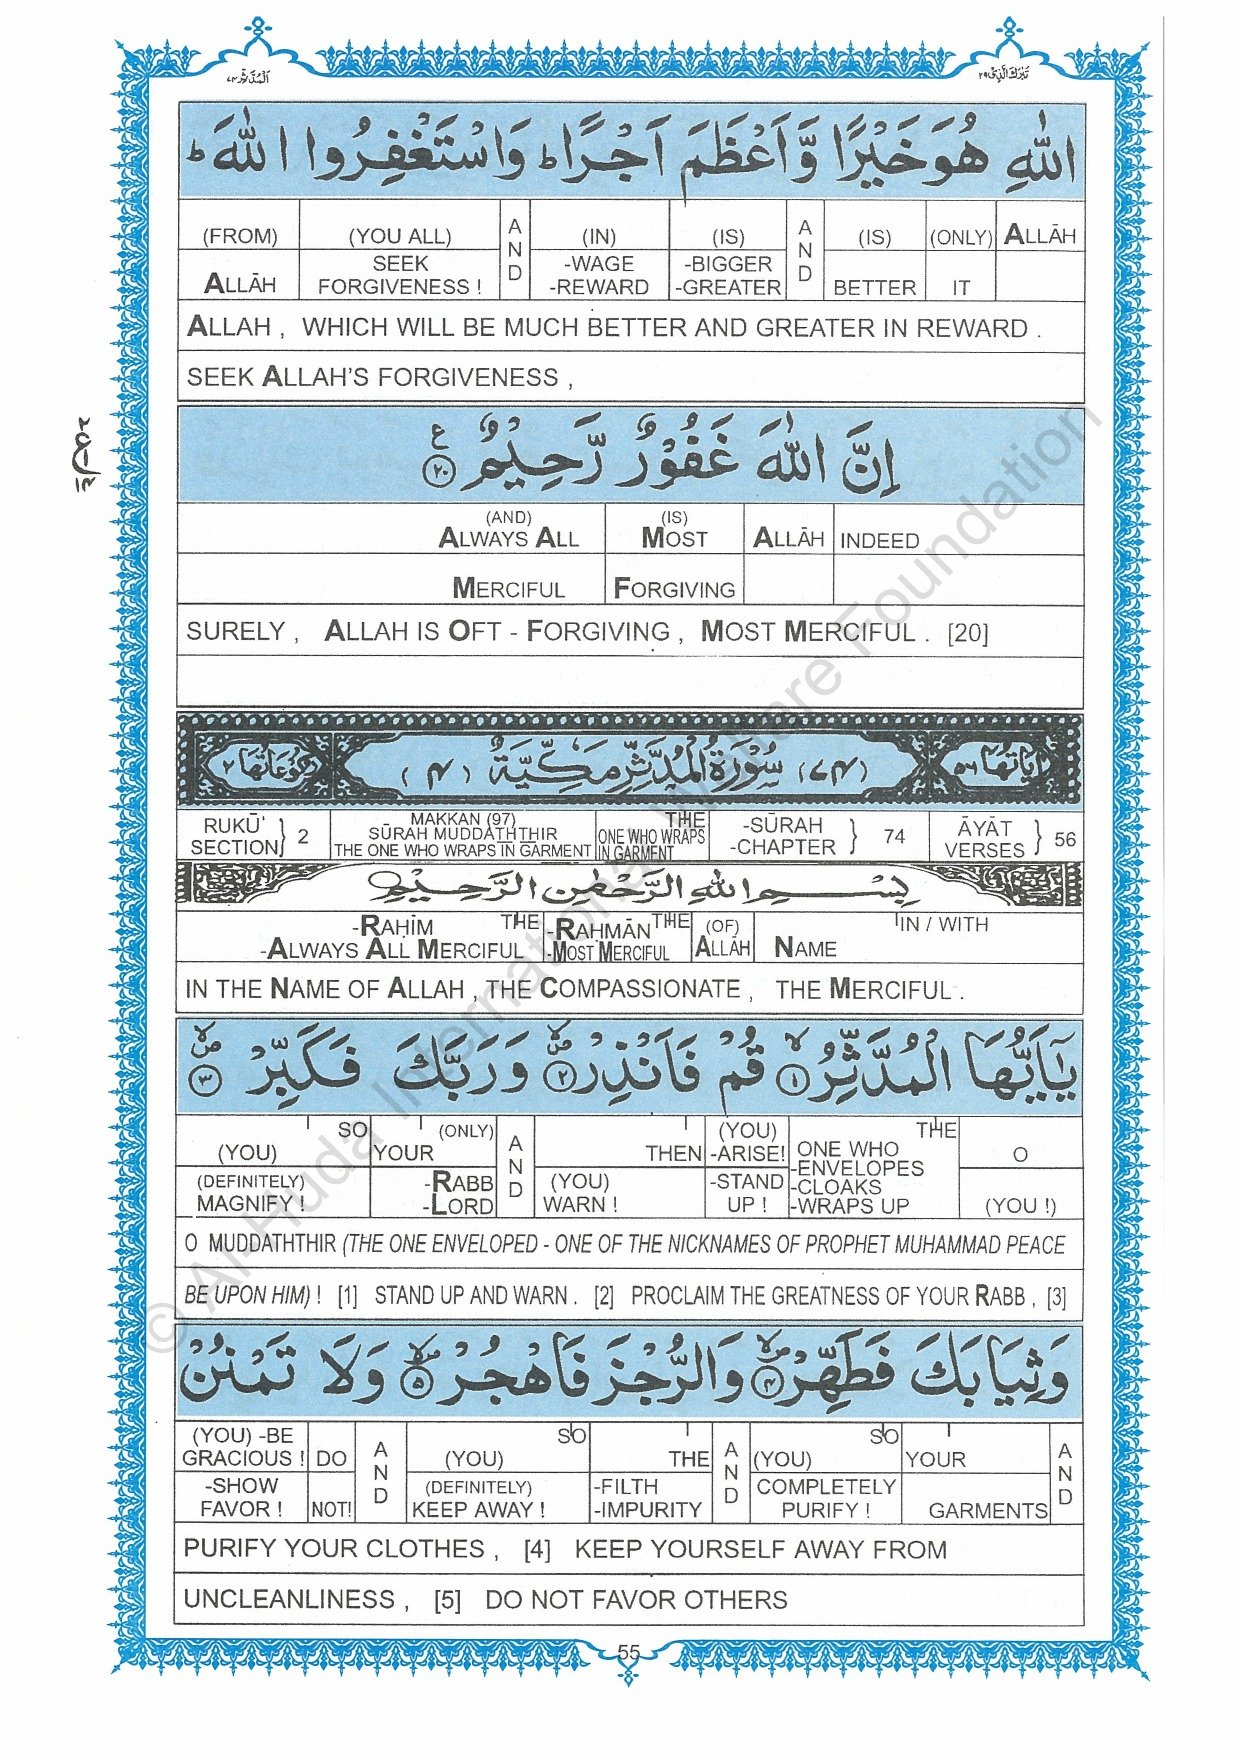 اَلْمُدَّثِّر٧٤ تَبٰرَكَ الَّذِیْ٢٩
اللّٰهِ هُوَ خَیْرًا وَّاَعْظَمَ اَجْرًا ؕ وَاسْتَغْفِرُوا اللّٰهَ ؕ
(FROM) (YOU ALL) AND (IN) (IS) AND (IS) (ONLY) ALLĀH
ALLĀH SEEK FORGIVENESS ! -WAGE -REWARD -BIGGER -GREATER BETTER IT
ALLAH , WHICH WILL BE MUCH BETTER AND GREATER IN REWARD .
SEEK ALLAH'S FORGIVENESS ,
اِنَّ اللّٰهَ غَفُوْرٌ رَّحِیْمٌ ﴿٢٠﴾ ع
(AND) ALWAYS ALL (IS) MOST ALLĀH INDEED
MERCIFUL FORGIVING
SURELY , ALLAH IS OFT - FORGIVING , MOST MERCIFUL . [20]
اٰیَاتُهَا ٥٦ (٧٤) سُوْرَةُ الْمُدَّثِّرِ مَكِّیَّةٌ (٤) رُكُوْعَاتُهَا ٢
RUKŪ' SECTION } 2 MAKKAN (97) SŪRAH MUDDATHTHIR THE ONE WHO WRAPS IN GARMENT THE ONE WHO WRAPS IN GARMENT -SŪRAH -CHAPTER } 74 ĀYĀT VERSES } 56
بِسْمِ اللّٰهِ الرَّحْمٰنِ الرَّحِیْمِ
-RAḤĪM THE -RAḤMĀN THE (OF) IN / WITH
-ALWAYS ALL MERCIFUL -MOST MERCIFUL ALLĀH NAME
IN THE NAME OF ALLAH , THE COMPASSIONATE , THE MERCIFUL .
یٰۤاَیُّهَا الْمُدَّثِّرُ ﴿١﴾ قُمْ فَاَنْذِرْ ﴿٢﴾ وَرَبَّكَ فَكَبِّرْ ﴿٣﴾
(YOU) SO YOUR (ONLY) AND THEN (YOU) -ARISE! THE ONE WHO -ENVELOPES -CLOAKS -WRAPS UP O
(DEFINITELY) MAGNIFY ! -RABB -LORD (YOU) WARN ! -STAND UP ! (YOU !)
O MUDDATHTHIR (THE ONE ENVELOPED - ONE OF THE NICKNAMES OF PROPHET MUHAMMAD PEACE
BE UPON HIM) ! [1] STAND UP AND WARN . [2] PROCLAIM THE GREATNESS OF YOUR RABB , [3]
وَثِیَابَكَ فَطَهِّرْ ﴿٤﴾ وَالرُّجْزَ فَاهْجُرْ ﴿٥﴾ وَلَا تَمْنُنْ
(YOU) -BE GRACIOUS ! DO AND (YOU) SO THE AND (YOU) SO YOUR AND
-SHOW FAVOR ! NOT! (DEFINITELY) KEEP AWAY ! -FILTH -IMPURITY COMPLETELY PURIFY ! GARMENTS
PURIFY YOUR CLOTHES , [4] KEEP YOURSELF AWAY FROM
UNCLEANLINESS , [5] DO NOT FAVOR OTHERS
55
© Al-Huda International Welfare Foundation